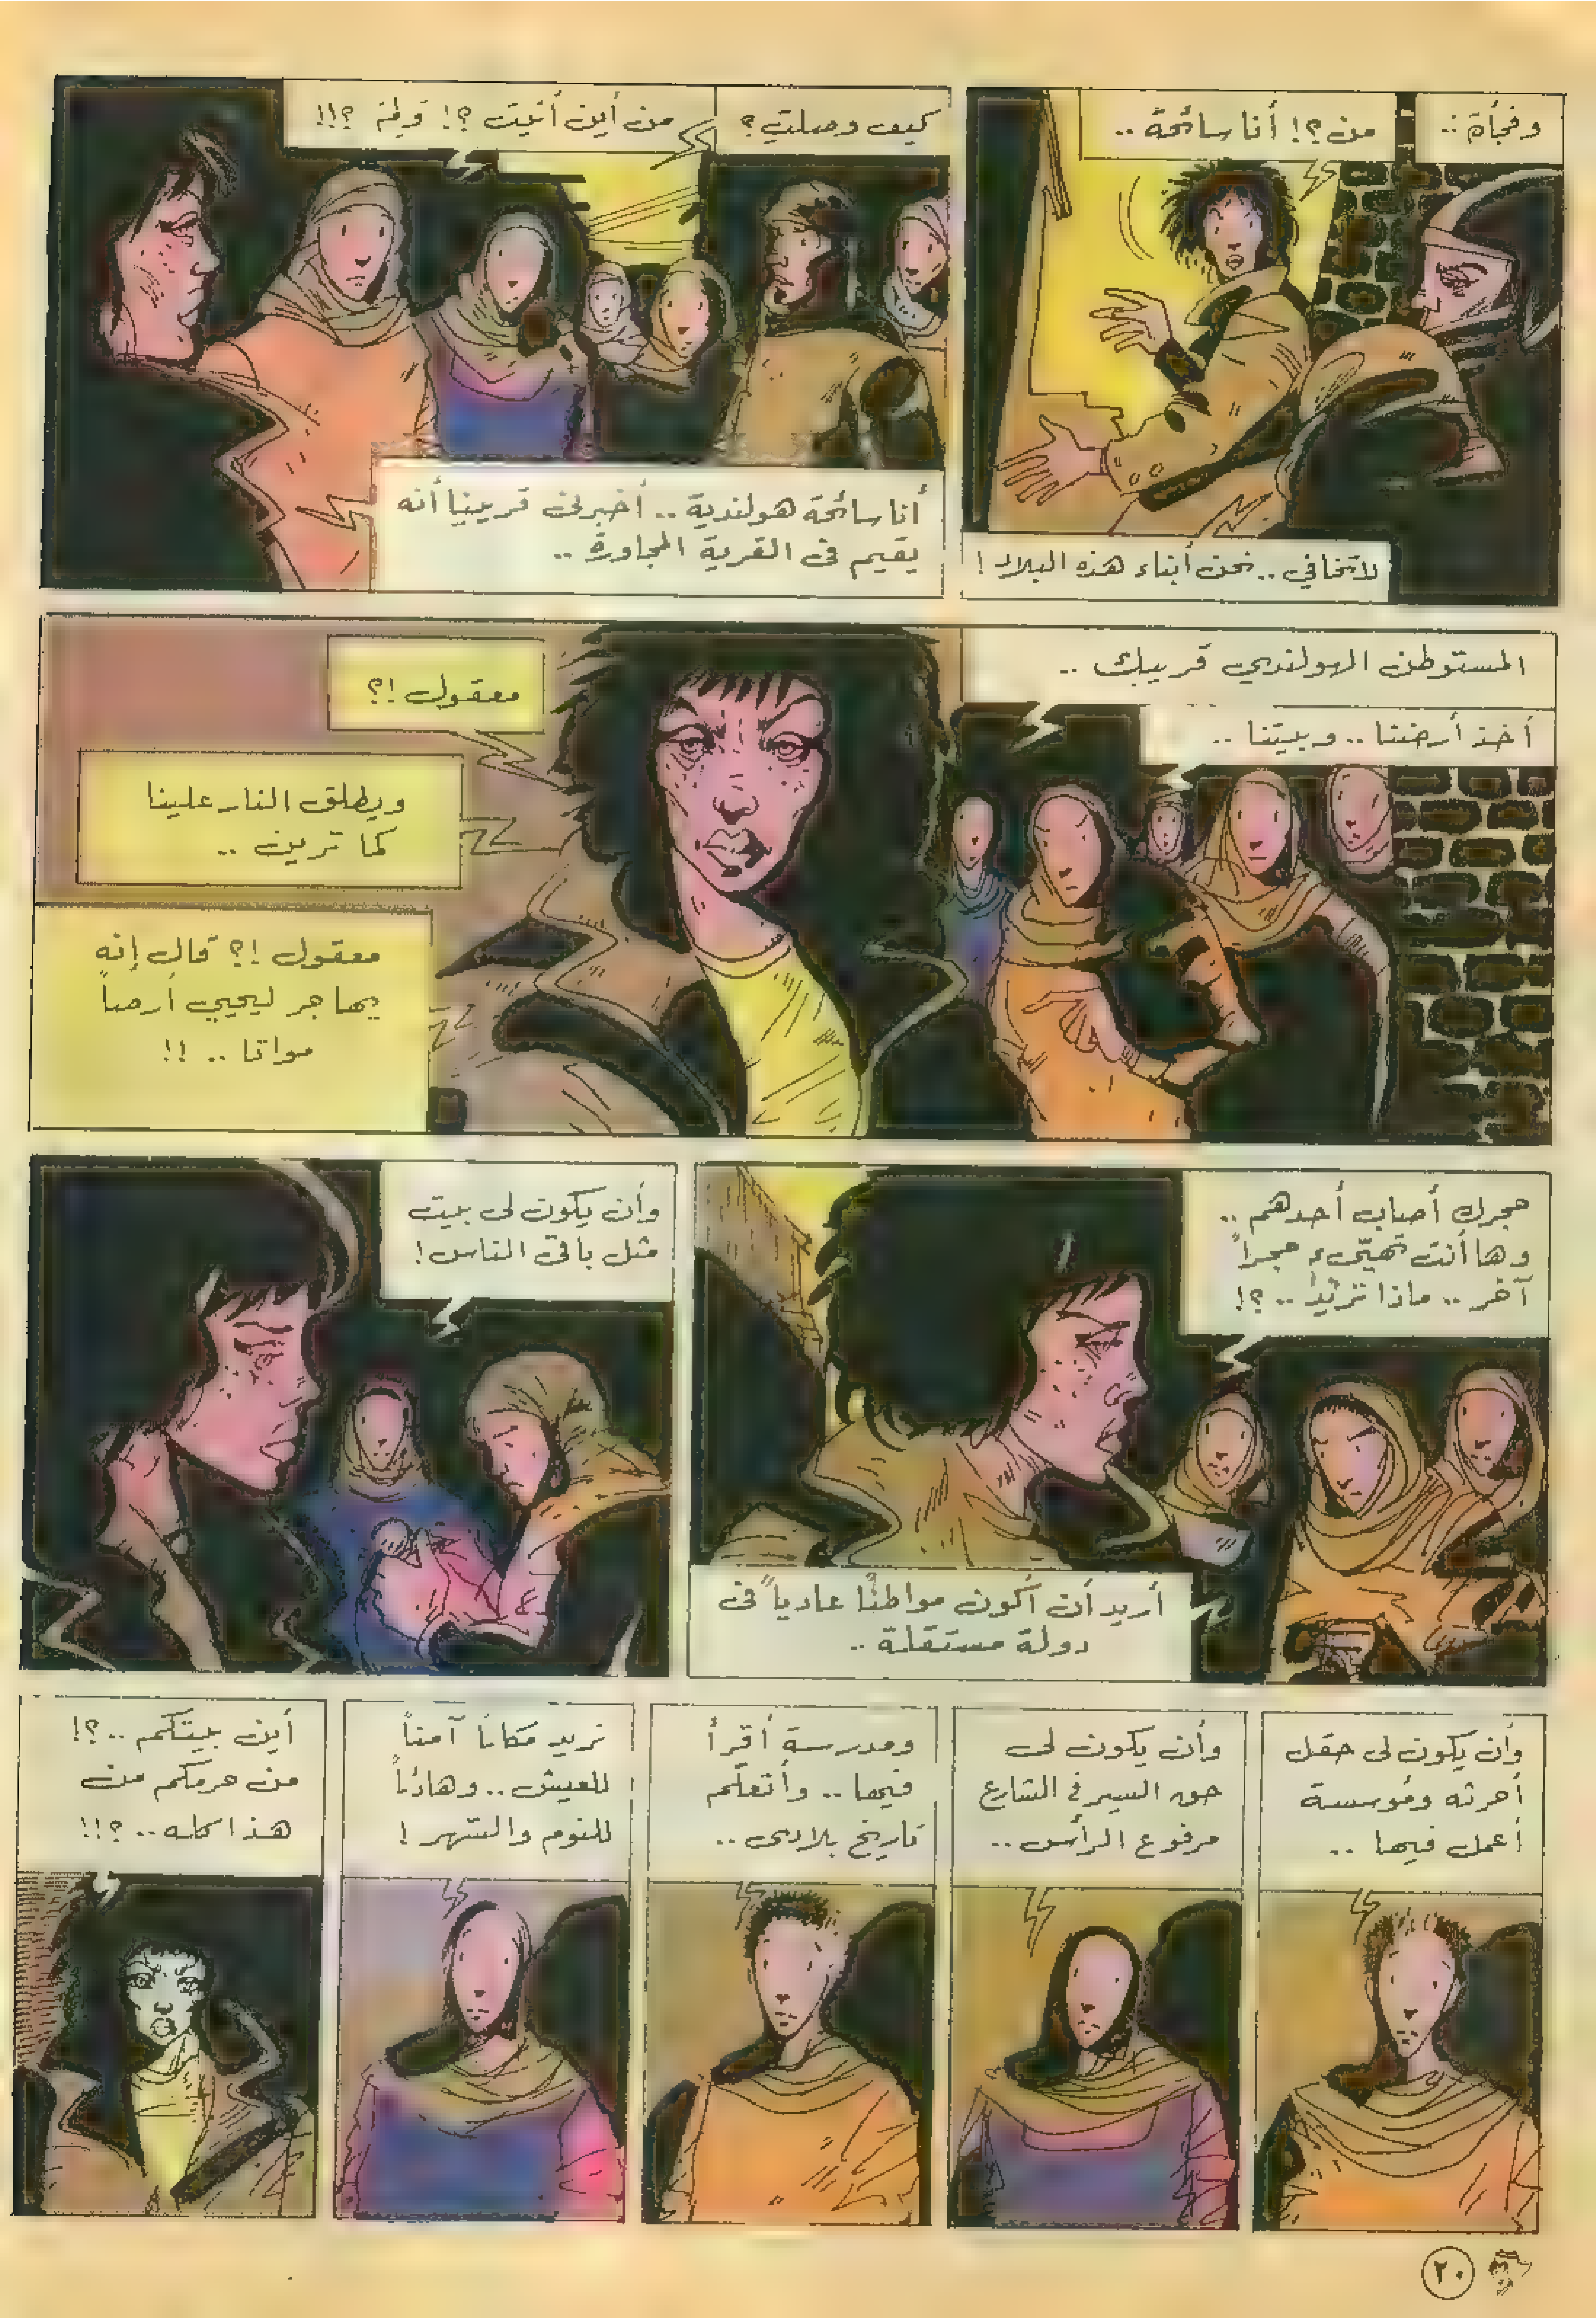 وفجأة ..
من ؟! أنا سائحة ..
لا تخافي .. نحن أبناء هذه البلاد !
كيف وصلتِ ؟
من أين أتيت ؟! ولمَ ؟!!
أنا سائحة هولندية .. أخبرنى قريبنا أنه
يقيم فى القرية المجاورة ..
المستوطن الهولندي قريبك ..
أخذ أرضنا .. وبيتنا ..
معقول !؟
ويطلق النار علينا
كما ترين ..
معقول !؟ قال إنه
يهاجر ليحيي أرضاً
مواتا .. !!
حجرك أصاب أحدهم ..
وها أنت تهيّىء حجراً
آخر .. ماذا تريد .. ؟!
أريد أن أكون مواطنًا عادياً فى
دولة مستقلة ..
وأن يكون لى بيت
مثل باقى الناس !
وأن يكون لى حقل
أحرثه ومؤسسة
أعمل فيها ..
وأن يكون لى
حق السير في الشارع
مرفوع الرأس ..
ومدرسة أقرأ
فيها .. وأتعلم
تاريخ بلادى ..
نريد مكاناً آمناً
للعيش .. وهادئاً
للنوم والسهر !
أين بيتكم .. ؟!
من حرمكم من
هذا كله .. ؟!!
٢٠